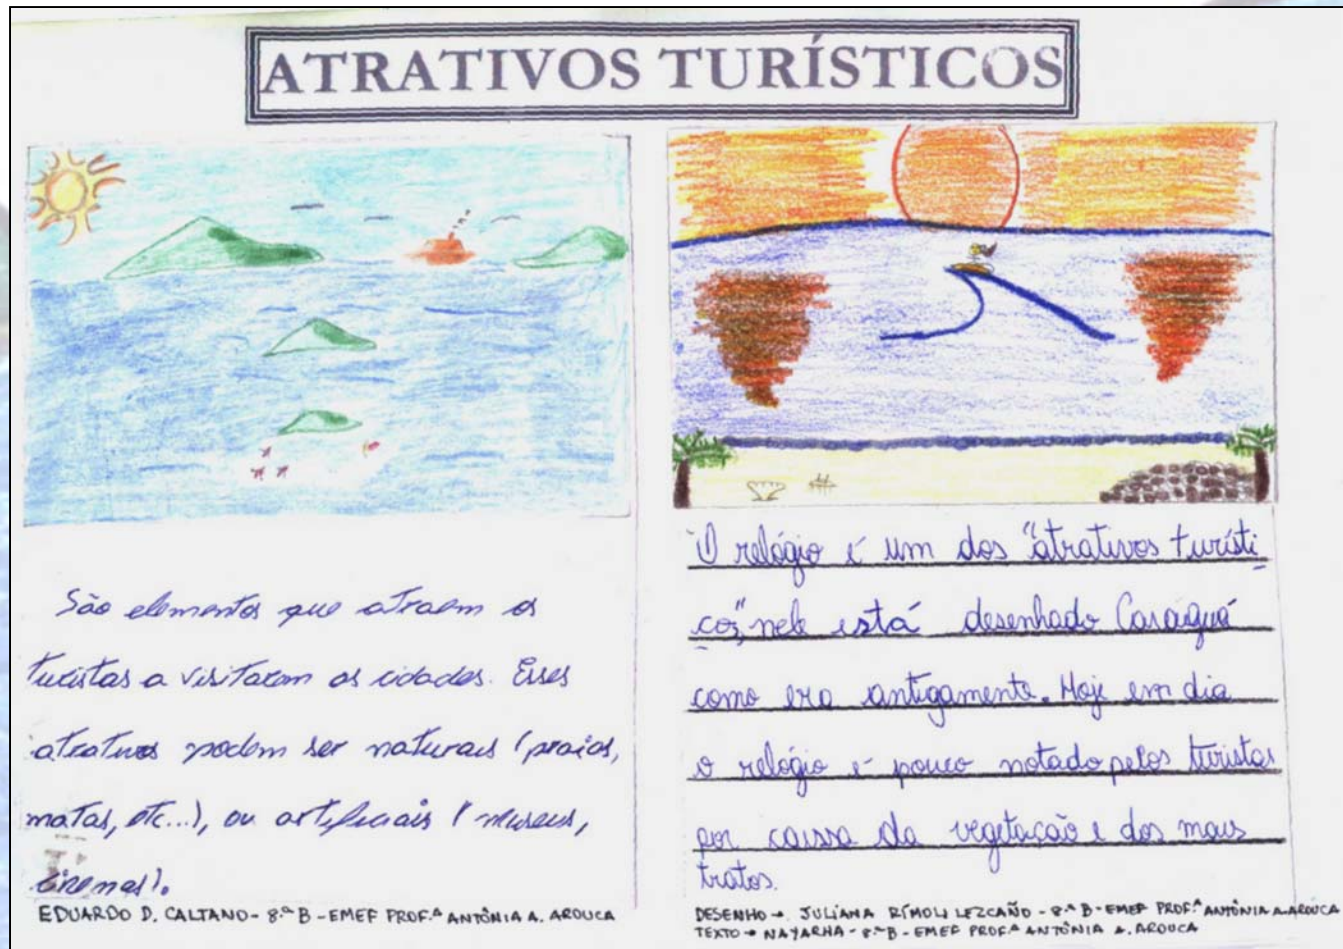 ATRATIVOS TURÍSTICOS
São elementos que atraem os
turistas a visitarem as cidades. Esses
atrativos podem ser naturais (praias,
matas, etc...), ou artificiais (museus,
cinemas).
EDUARDO D. CALTANO - 8.ª B - EMEF PROF.ª ANTÔNIA A. AROUCA
O relógio é um dos "atrativos turísti
cos", nele está desenhado Caraguá
como era antigamente. Hoje em dia
o relógio é pouco notado pelos turistas
por causa da vegetação e dos maus
tratos.
DESENHO → JULIANA RÍMOLI LEZCAÑO - 8.ª B - EMEF PROF.ª ANTÔNIA A. AROUCA
TEXTO → NAYARHA - 8.ª B - EMEF PROF.ª ANTÔNIA A. AROUCA